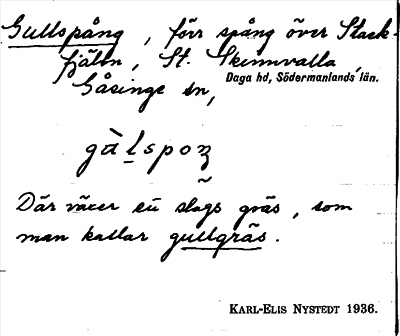 Gullspång, förr spång över Stack-
fjälon, St. Skinnvalla,
Gåsinge sn, Daga hd, Södermanlands län.
Där växer en slags gräs, som
man kallar gullgräs.
KARL-ELIS NYSTEDT 1936.